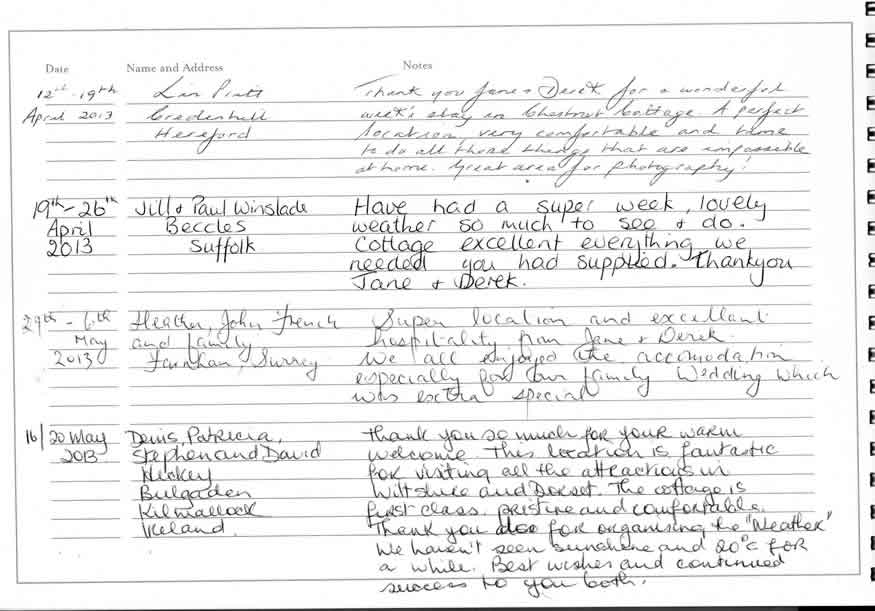 Date Name and Address Notes
12th - 19th Lin Pratt Thank you Jane & Derek for a wonderful
April 2013 Credenhill week's stay in Chestnut Cottage. A perfect
Hereford location, very comfortable and time
to do all those things that are impossible
at home. Great area for photography!
19th - 26th Jill & Paul Winslade Have had a super week, lovely
April Beccles weather so much to see & do.
2013 Suffolk Cottage excellent everything we
needed you had supplied. Thankyou
Jane & Derek.
29th - 6th Heather, John French Super location and excellent
May and family hospitality from Jane & Derek.
2013 Farnham, Surrey We all enjoyed the accomodation
especially for our family Wedding which
was extra special
16/20 May Denis, Patricia, Thank you so much for your warm
2013 Stephen and David welcome. This location is fantastic
Hickey for visiting all the attractions in
Bulgaden Wiltshire and Dorset. The cottage is
Kilmallock first class, pristine and comfortable.
Ireland. Thank you also for organising the "Weather"
We haven't seen sunshine and 20°c for
a while. Best wishes and continued
success to you both.